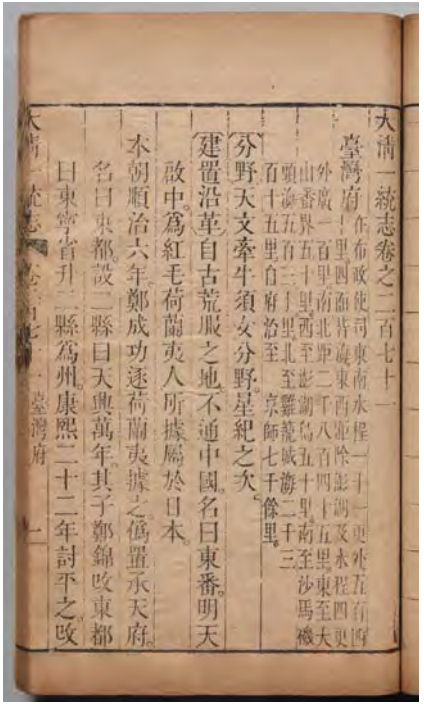 大清一統志卷之二百七十一
臺灣府
在布政使司東南水程一十一更外五百四
十里。四面皆海東西距除澎湖及水程四更
外廣一百里。南北距二千八百四十五里。東至大
山番界五十里。西至澎湖島五十里。南至沙馬磯
頭海五百三十里北至雞籠城海二千三
百十五里自府治至 京師七千餘里。
分野天文牽牛須女分野。星紀之次。
建置沿革自古荒服之地。不通中國。名曰東番。明天
啟中。為紅毛荷蘭夷人所據屬於日本。
本朝順治六年。鄭成功逐荷蘭夷據之。偽置承天府。
名曰東都。設二縣曰天興萬年。其子鄭錦改東都
曰東寧省。升二縣爲州。康熙二十二年討平之。改
大清一統志
臺灣府
一